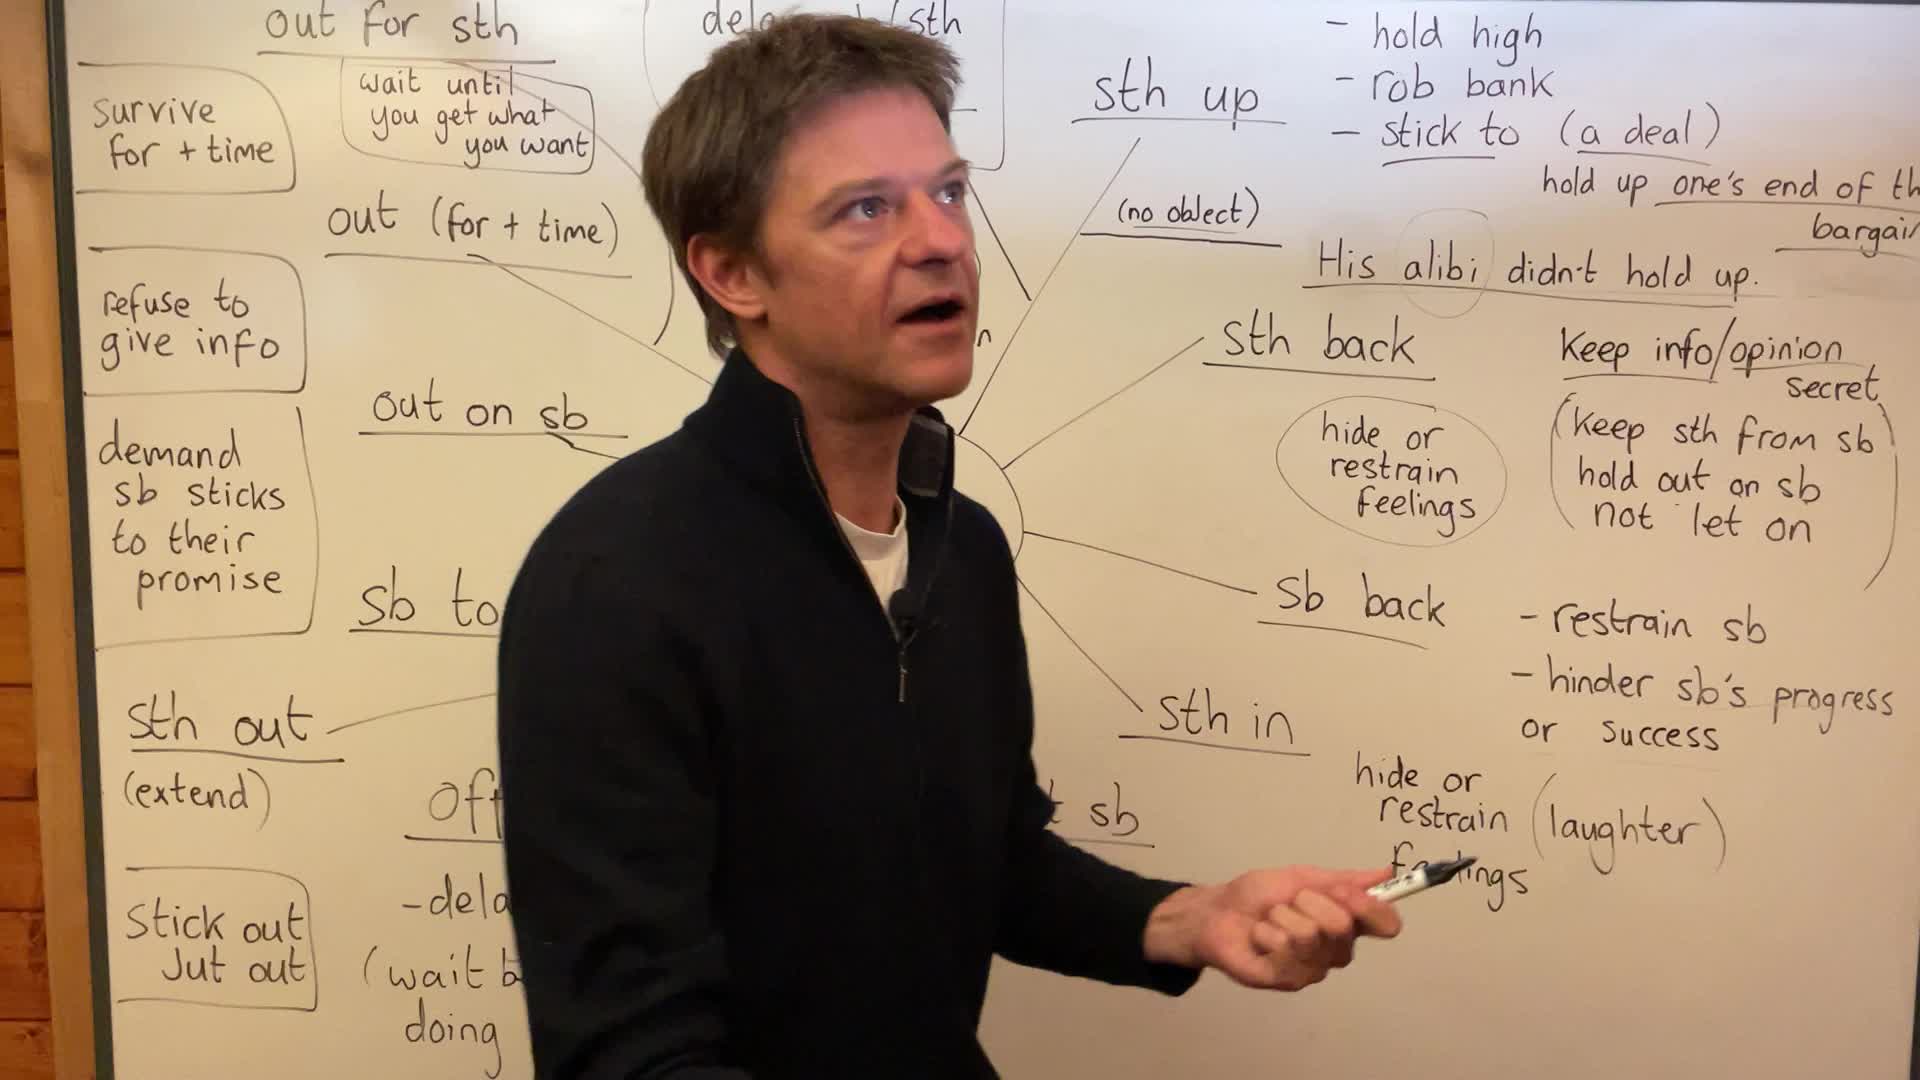 out for sth
wait until
you get what
you want
survive
for + time
out (for + time)
refuse to
give info
out on sb
demand
sb sticks
to their
promise
sb to
sth out
(extend)
stick out
Jut out
(wait
doing
sth
sth up
(no object)
- hold high
- rob bank
- stick to (a deal)
hold up one's end of
His alibi didn't hold up.
sth back
Keep info/opinion
secret
hide or
restrain
feelings
(keep sth from sb
hold out on sb
not let on)
sb back
- restrain sb
- hinder sb's progress
or success
sth in
hide or
restrain (laughter)
sb